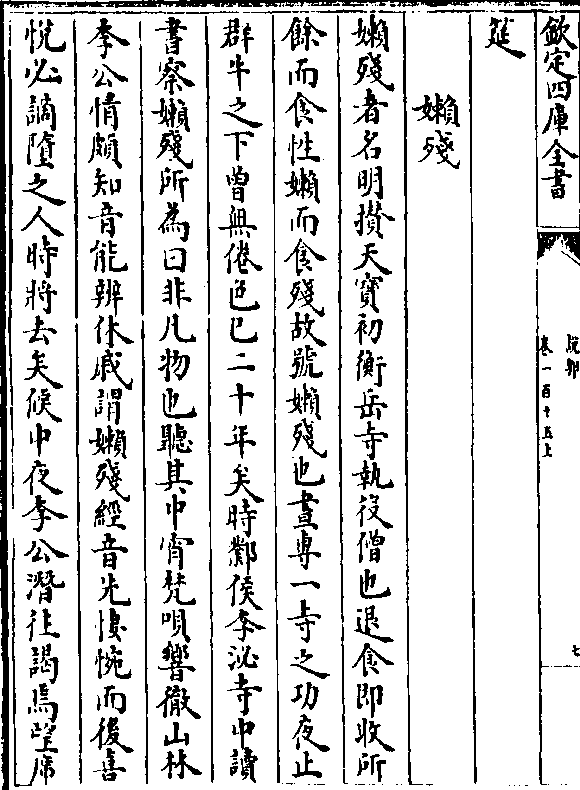 欽定四庫全書
說郛
卷一百十五上
七
筵
嬾殘
嬾殘者名明攢天寶初衡岳寺執役僧也退食即收所
餘而食性嬾而食殘故號嬾殘也晝專一寺之功夜止
群牛之下曾無倦色已二十年矣時鄴侯李泌寺中讀
書察嬾殘所為曰非凡物也聽其中宵梵唄響徹山林
李公情頗知音能辨休戚謂嬾殘經音先悽惋而後喜
悅必謫墮之人時將去矣候中夜李公潛往謁焉望席